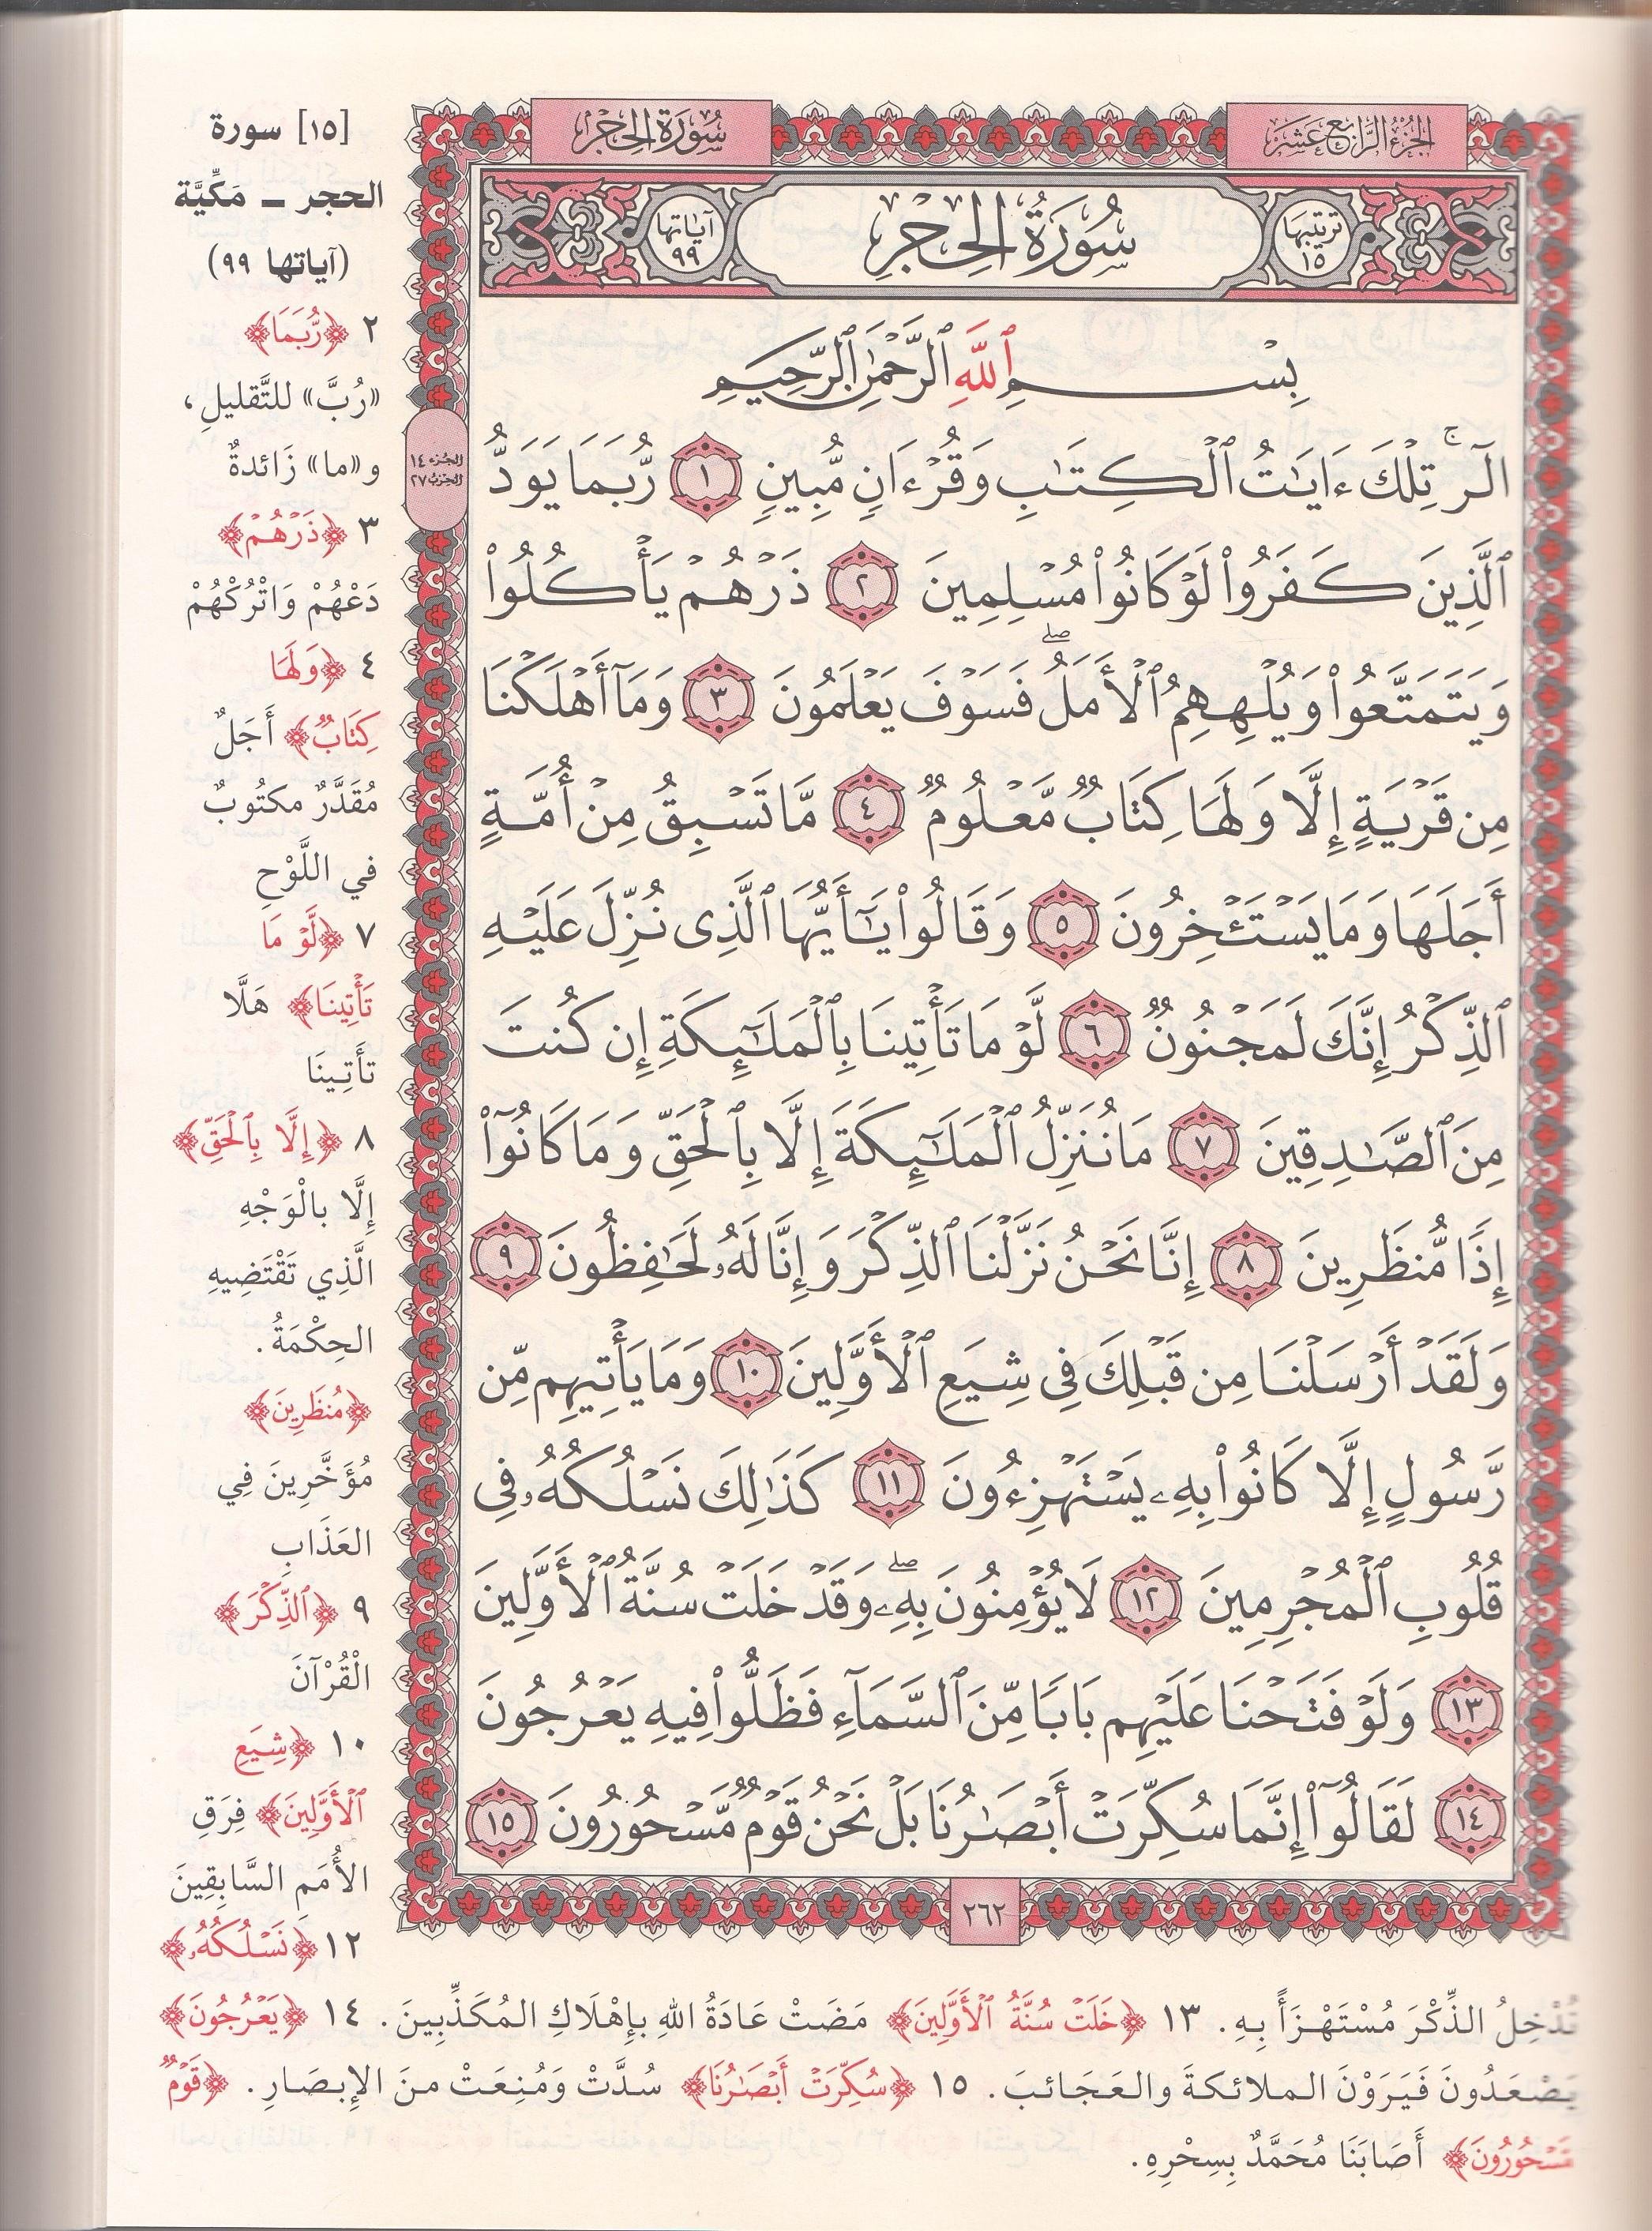 الجزء الرابع عشر
سورة الحجر
ترتيبها ١٥
سُورَةُ الحِجْرِ
آياتها ٩٩
بِسْمِ ٱللَّهِ ٱلرَّحْمَٰنِ ٱلرَّحِيمِ
الٓر ۚ تِلْكَ ءَايَٰتُ ٱلْكِتَٰبِ وَقُرْءَانٍ مُّبِينٍ ١ رُّبَمَا يَوَدُّ
ٱلَّذِينَ كَفَرُوا۟ لَوْ كَانُوا۟ مُسْلِمِينَ ٢ ذَرْهُمْ يَأْكُلُوا۟
وَيَتَمَتَّعُوا۟ وَيُلْهِهِمُ ٱلْأَمَلُ ۖ فَسَوْفَ يَعْلَمُونَ ٣ وَمَآ أَهْلَكْنَا
مِن قَرْيَةٍ إِلَّا وَلَهَا كِتَابٌ مَّعْلُومٌ ٤ مَّا تَسْبِقُ مِنْ أُمَّةٍ
أَجَلَهَا وَمَا يَسْتَـْٔخِرُونَ ٥ وَقَالُوا۟ يَٰٓأَيُّهَا ٱلَّذِى نُزِّلَ عَلَيْهِ
ٱلذِّكْرُ إِنَّكَ لَمَجْنُونٌ ٦ لَّوْ مَا تَأْتِينَا بِٱلْمَلَٰٓئِكَةِ إِن كُنتَ
مِنَ ٱلصَّٰدِقِينَ ٧ مَا نُنَزِّلُ ٱلْمَلَٰٓئِكَةَ إِلَّا بِٱلْحَقِّ وَمَا كَانُوٓا۟
إِذًا مُّنظَرِينَ ٨ إِنَّا نَحْنُ نَزَّلْنَا ٱلذِّكْرَ وَإِنَّا لَهُۥ لَحَٰفِظُونَ ٩
وَلَقَدْ أَرْسَلْنَا مِن قَبْلِكَ فِى شِيَعِ ٱلْأَوَّلِينَ ١٠ وَمَا يَأْتِيهِم مِّن
رَّسُولٍ إِلَّا كَانُوا۟ بِهِۦ يَسْتَهْزِءُونَ ١١ كَذَٰلِكَ نَسْلُكُهُۥ فِى
قُلُوبِ ٱلْمُجْرِمِينَ ١٢ لَا يُؤْمِنُونَ بِهِۦ ۖ وَقَدْ خَلَتْ سُنَّةُ ٱلْأَوَّلِينَ
١٣ وَلَوْ فَتَحْنَا عَلَيْهِم بَابًا مِّنَ ٱلسَّمَآءِ فَظَلُّوا۟ فِيهِ يَعْرُجُونَ
١٤ لَقَالُوٓا۟ إِنَّمَا سُكِّرَتْ أَبْصَٰرُنَا بَلْ نَحْنُ قَوْمٌ مَّسْحُورُونَ ١٥
٢٦٢
الجزء ١٤
الحزب ٢٧
[١٥] سورة
الحجر – مَكِّيَّة
(آياتها ٩٩)
٢ ﴿رُّبَمَا﴾
«رُبَّ» للتَّقليلِ،
و«ما» زَائدةٌ
٣ ﴿ذَرْهُمْ﴾
دَعْهُمْ وَاتْرُكْهُمْ
٤ ﴿وَلَهَا
كِتَابٌ﴾ أَجَلٌ
مُقَدَّرٌ مكتُوبٌ
في اللَّوْحِ
٧ ﴿لَّوْ مَا
تَأْتِينَا﴾ هَلَّا
تأَتِينَا
٨ ﴿إِلَّا بِٱلْحَقِّ﴾
إِلَّا بالْوَجْهِ
الَّذِي تَقْتَضِيهِ
الحِكْمَةُ.
﴿مُنظَرِينَ﴾
مُؤَخَّرِينَ فِي
العَذَابِ
٩ ﴿ٱلذِّكْرَ﴾
الْقُرْآنَ
١٠ ﴿شِيَعِ
ٱلْأَوَّلِينَ﴾ فِرَقِ
الأُمَمِ السَّابِقِينَ
١٢ ﴿نَسْلُكُهُۥ﴾
نُدْخِلُ الذِّكْرَ مُسْتَهْزَأً بِهِ. ١٣ ﴿خَلَتْ سُنَّةُ ٱلْأَوَّلِينَ﴾ مَضَتْ عَادَةُ اللهِ بإِهْلَاكِ المُكَذِّبِينَ. ١٤ ﴿يَعْرُجُونَ﴾
يَصْعَدُونَ فَيَرَوْنَ الملائكةَ والعَجَائبَ. ١٥ ﴿سُكِّرَتْ أَبْصَٰرُنَا﴾ سُدَّتْ وَمُنِعَتْ منَ الإِبصَارِ. ﴿قَوْمٌ
مَّسْحُورُونَ﴾ أَصَابَنَا مُحَمَّدٌ بِسِحْرِهِ.